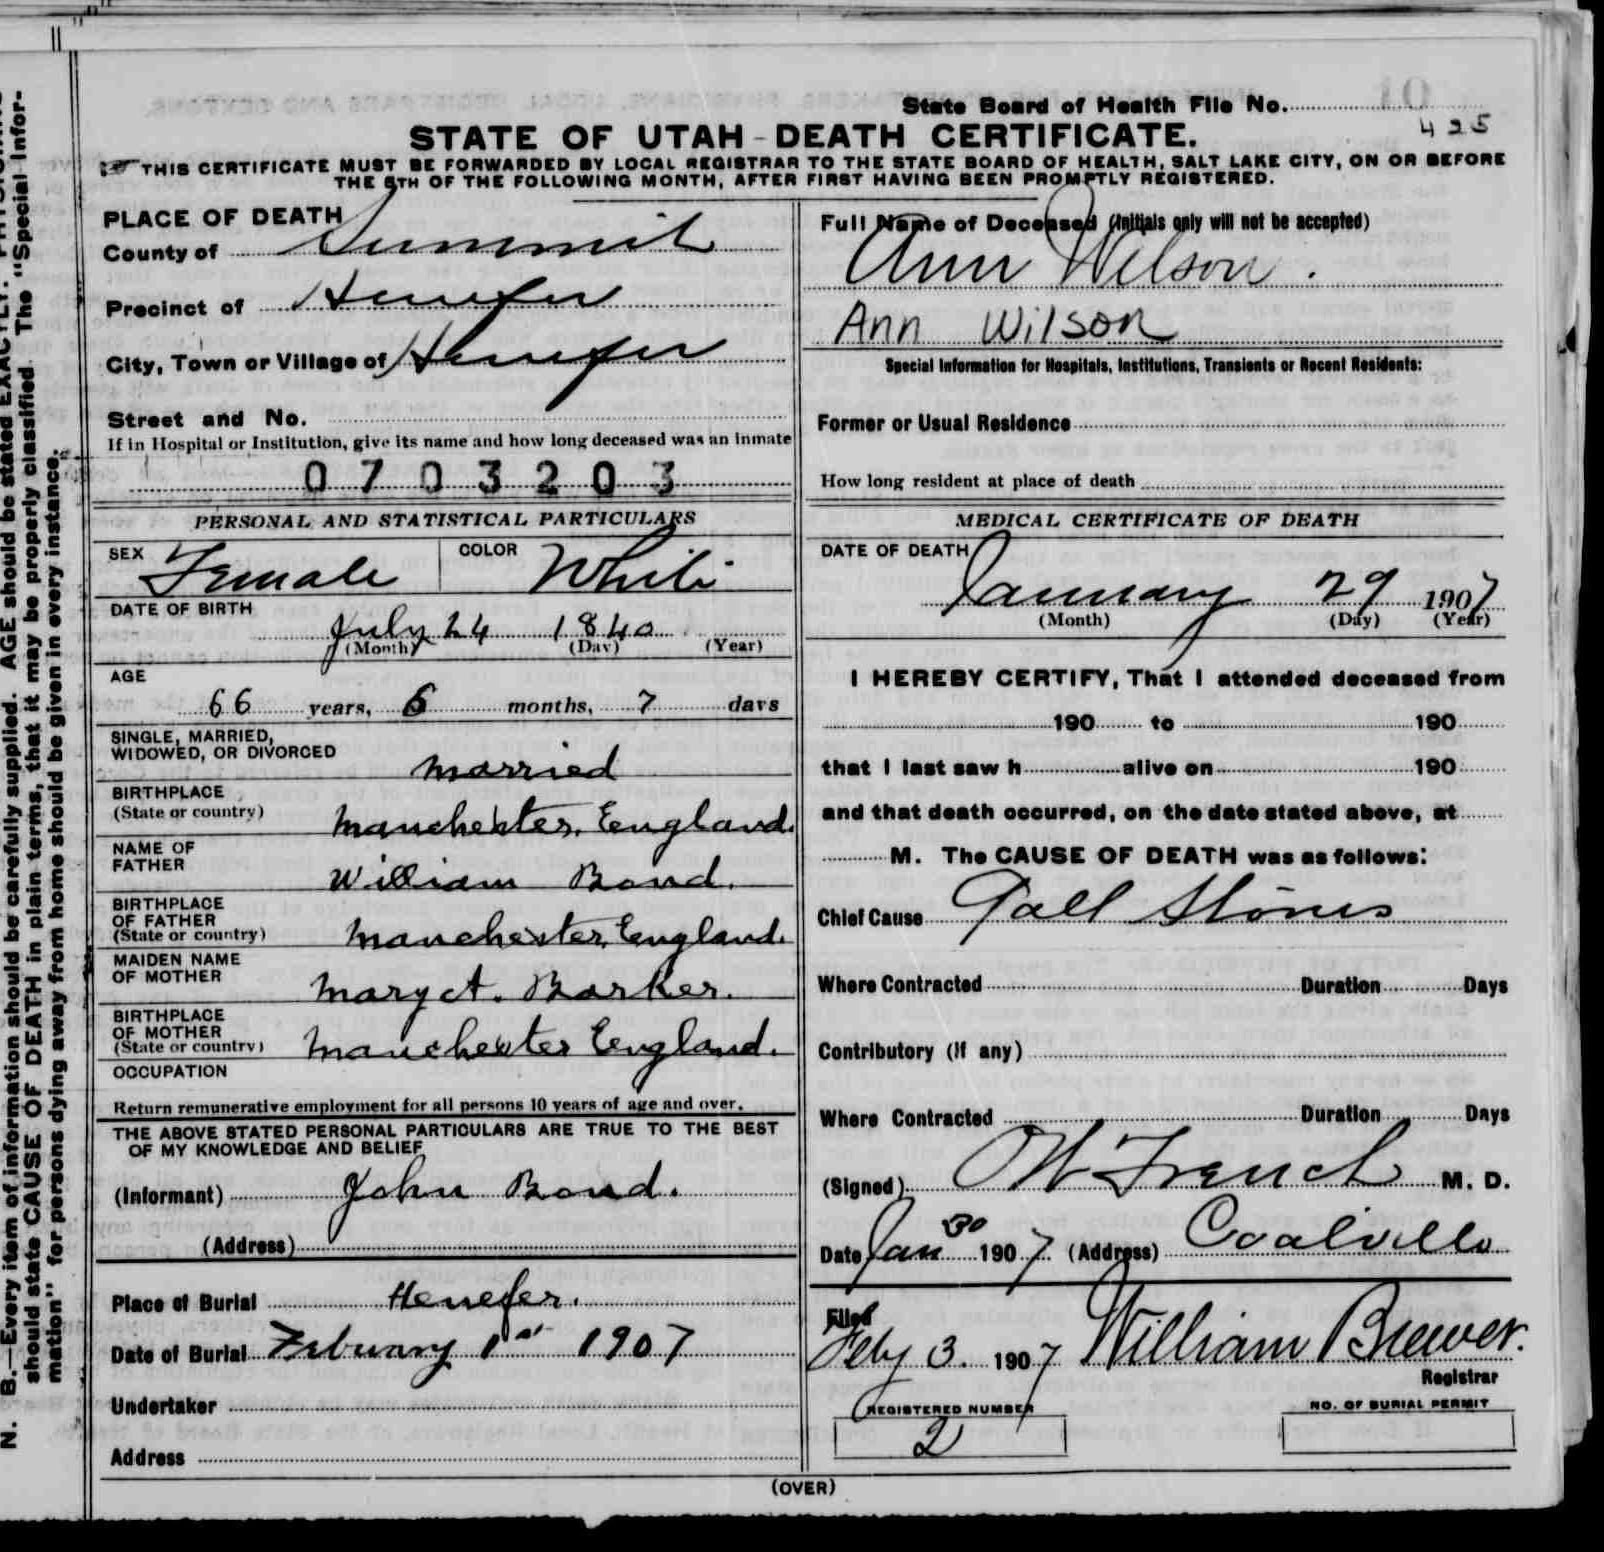 State Board of Health File No.
425
STATE OF UTAH - DEATH CERTIFICATE.
THIS CERTIFICATE MUST BE FORWARDED BY LOCAL REGISTRAR TO THE STATE BOARD OF HEALTH, SALT LAKE CITY, ON OR BEFORE
THE 5TH OF THE FOLLOWING MONTH, AFTER FIRST HAVING BEEN PROMPTLY REGISTERED.
PLACE OF DEATH
County of Summit
Precinct of Henefer
City, Town or Village of Henefer
Street and No.
If in Hospital or Institution, give its name and how long deceased was an inmate
0703203
PERSONAL AND STATISTICAL PARTICULARS
SEX Female COLOR White
DATE OF BIRTH
July 24 1840
(Month) (Day) (Year)
AGE
66 years, 6 months, 7 days
SINGLE, MARRIED,
WIDOWED, OR DIVORCED married
BIRTHPLACE
(State or country) Manchester, England.
NAME OF
FATHER William Bond.
BIRTHPLACE
OF FATHER
(State or country) Manchester, England.
MAIDEN NAME
OF MOTHER Mary A. Barker.
BIRTHPLACE
OF MOTHER
(State or country) Manchester England.
OCCUPATION
Return remunerative employment for all persons 10 years of age and over.
THE ABOVE STATED PERSONAL PARTICULARS ARE TRUE TO THE BEST
OF MY KNOWLEDGE AND BELIEF
(Informant) John Bond.
(Address)
Place of Burial Henefer.
Date of Burial February 1st 1907
Undertaker
Address
Full Name of Deceased (Initials only will not be accepted)
Ann Wilson.
Ann Wilson
Special Information for Hospitals, Institutions, Transients or Recent Residents:
Former or Usual Residence
How long resident at place of death
MEDICAL CERTIFICATE OF DEATH
DATE OF DEATH
January 29 1907
(Month) (Day) (Year)
I HEREBY CERTIFY, That I attended deceased from
190 to 190
that I last saw h alive on 190
and that death occurred, on the date stated above, at
M. The CAUSE OF DEATH was as follows:
Chief Cause Gall Stones
Where Contracted Duration Days
Contributory (if any)
Where Contracted Duration Days
(Signed) French M. D.
Date Jan 30 1907 (Address) Coalville
Filed
Feby 3. 1907 William Brewer.
Registrar
REGISTERED NUMBER NO. OF BURIAL PERMIT
2
(OVER)
N. B.—Every item of information should be carefully supplied. AGE should be stated EXACTLY.
should state CAUSE OF DEATH in plain terms, that it may be properly classified. The "Special Infor-
mation" for persons dying away from home should be given in every instance.